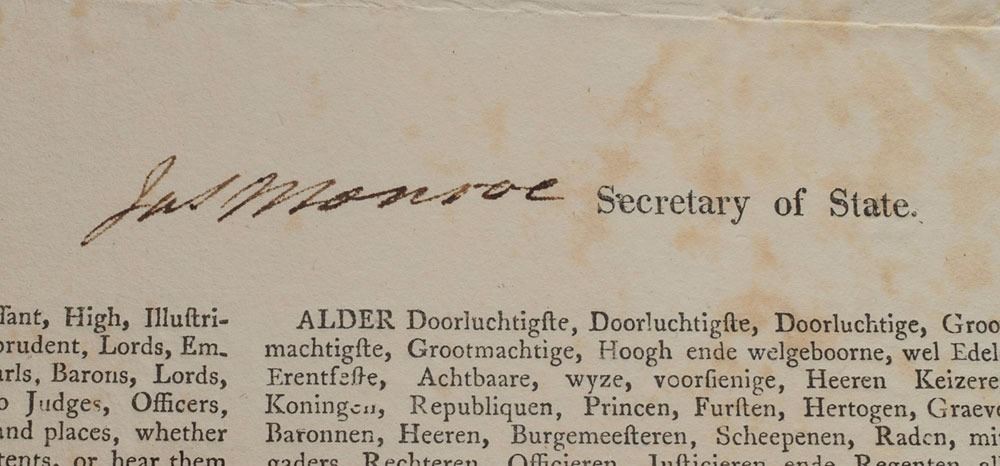 Jas Monroe Secretary of State.
High, Illuſtri-
Lords, Em-
Barons, Lords,
Judges, Officers,
and places, whether
or hear them
ALDER Doorluchtigſte, Doorluchtigſte, Doorluchtige,
machtigſte, Grootmachtige, Hoogh ende welgeboorne, wel Edel
Erentfeſte, Achtbaare, wyze, voorſienige, Heeren
Koningen, Republiquen, Princen, Furſten, Hertogen,
Baronnen, Heeren, Burgemeeſteren, Scheepenen, Raden,
Rechteren, Officieren, Juſticieren ende Regenten